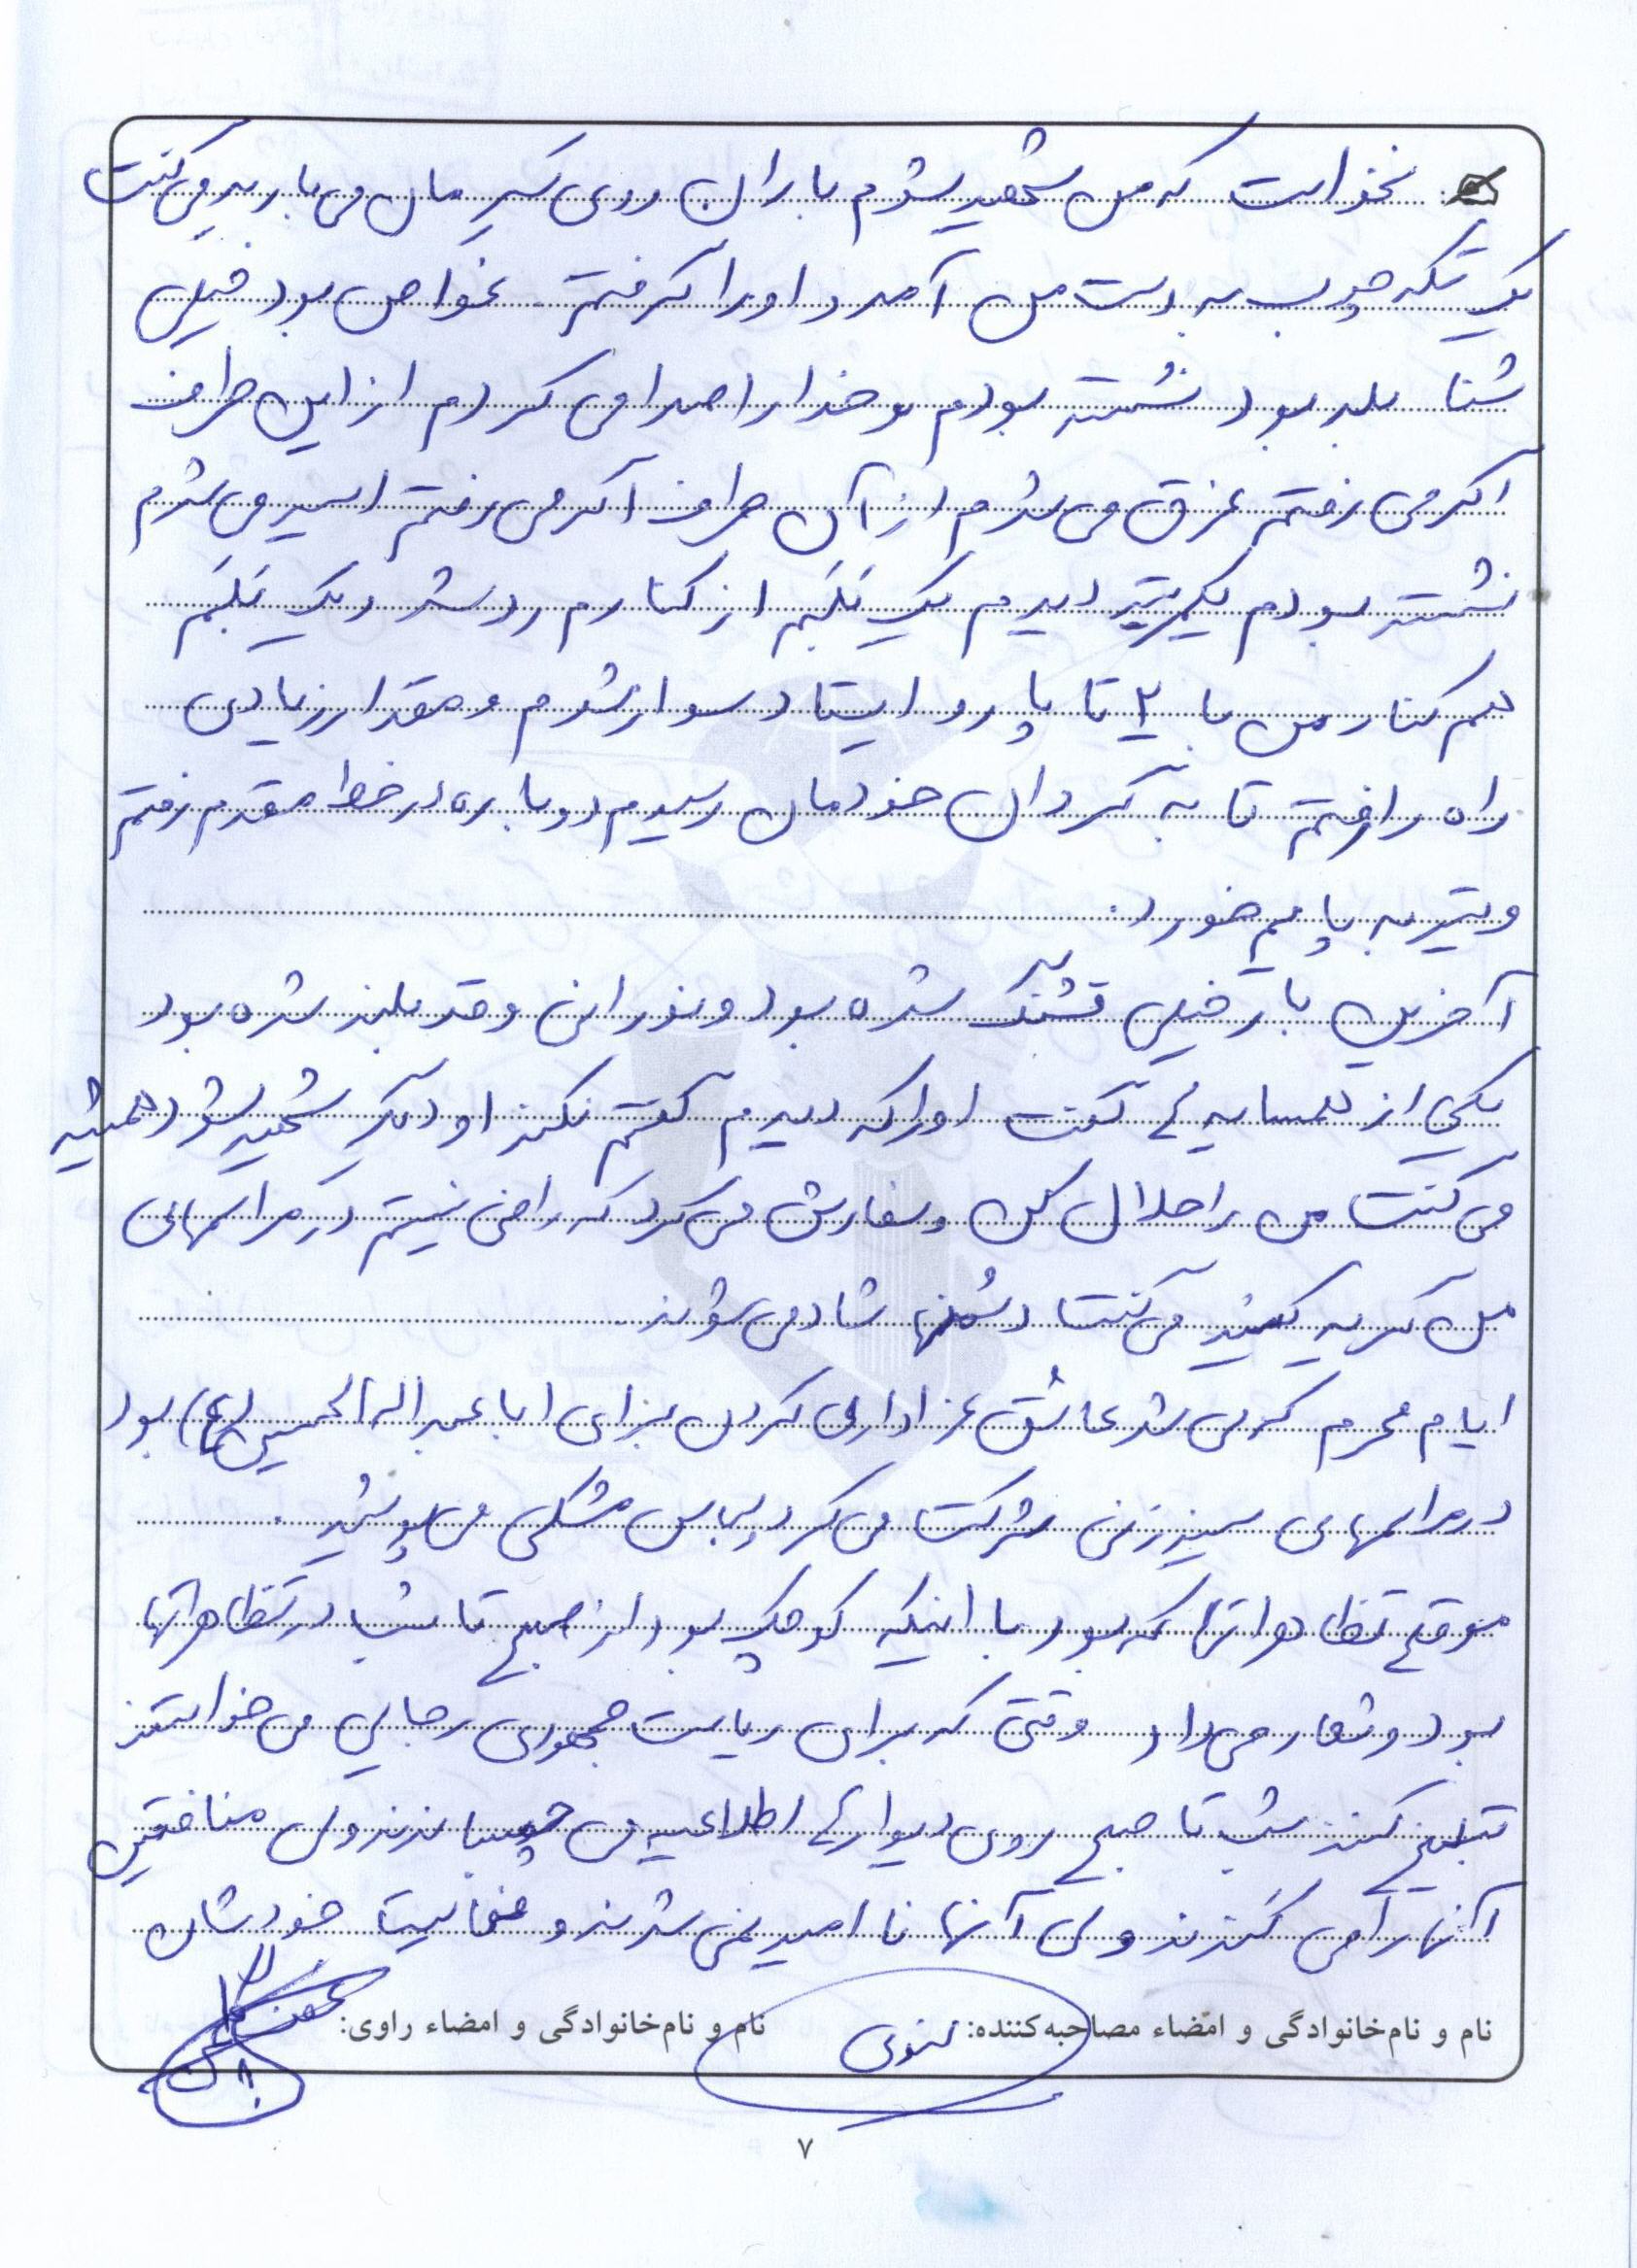 نخواست که من شهید شوم باران روی سرمان می بارید می گفت
یک تکه چوب به دست من آمد و او را گرفتم. غواص بود خیلی
شنا بلد بود نشسته بودم و خدا را صدا می کردم از این طرف
اگر می رفتم غرق می شدم از آن طرف اگر می رفتم اسیر می شدم
نشسته بودم یکمرتبه دیدم یک بَلَم از کنارم رد شد و یک بَلَم
هم کنار من با ۲ تا پارو ایستاد سوار شدم و مقدار زیادی
راه را رفتم تا به گردان خودمان رسیدم دوباره در خط مقدم رفتم
و تیر به پایم خورد.
آخرین بار خیلی قشنگ شده بود و نورانی و قد بلند شده بود
یکی از همسایه ها گفت او را که دیدم گفتم نکند او دیگر شهید شود همیشه
می گفت من را حلال کن و سفارش می کرد که راضی نیستم در مراسمهای
من گریه کنید می گفت دشمنها شاد می شوند.
ایام محرم که می شد عاشق عزاداری کردن برای اباعبداله الحسین (ع) بود
در مراسمهای سینه زنی شرکت می کرد و لباس مشکی می پوشید.
موقع تظاهراتها که بود با اینکه کوچک بود از صبح تا شب در تظاهراتها
بود و شعار می داد وقتی که برای ریاست جمهوری رجایی می خواستند
تبلیغ کنند شب تا صبح روی دیوارها اطلاعیه می چسباندند ولی منافقین
آنها را می کَندند ولی آنها نا امید نمی شدند و فعالیت خودشان
نام و نام خانوادگی و امضاء مصاحبه کننده: نام و نام خانوادگی و امضاء راوی:
۷